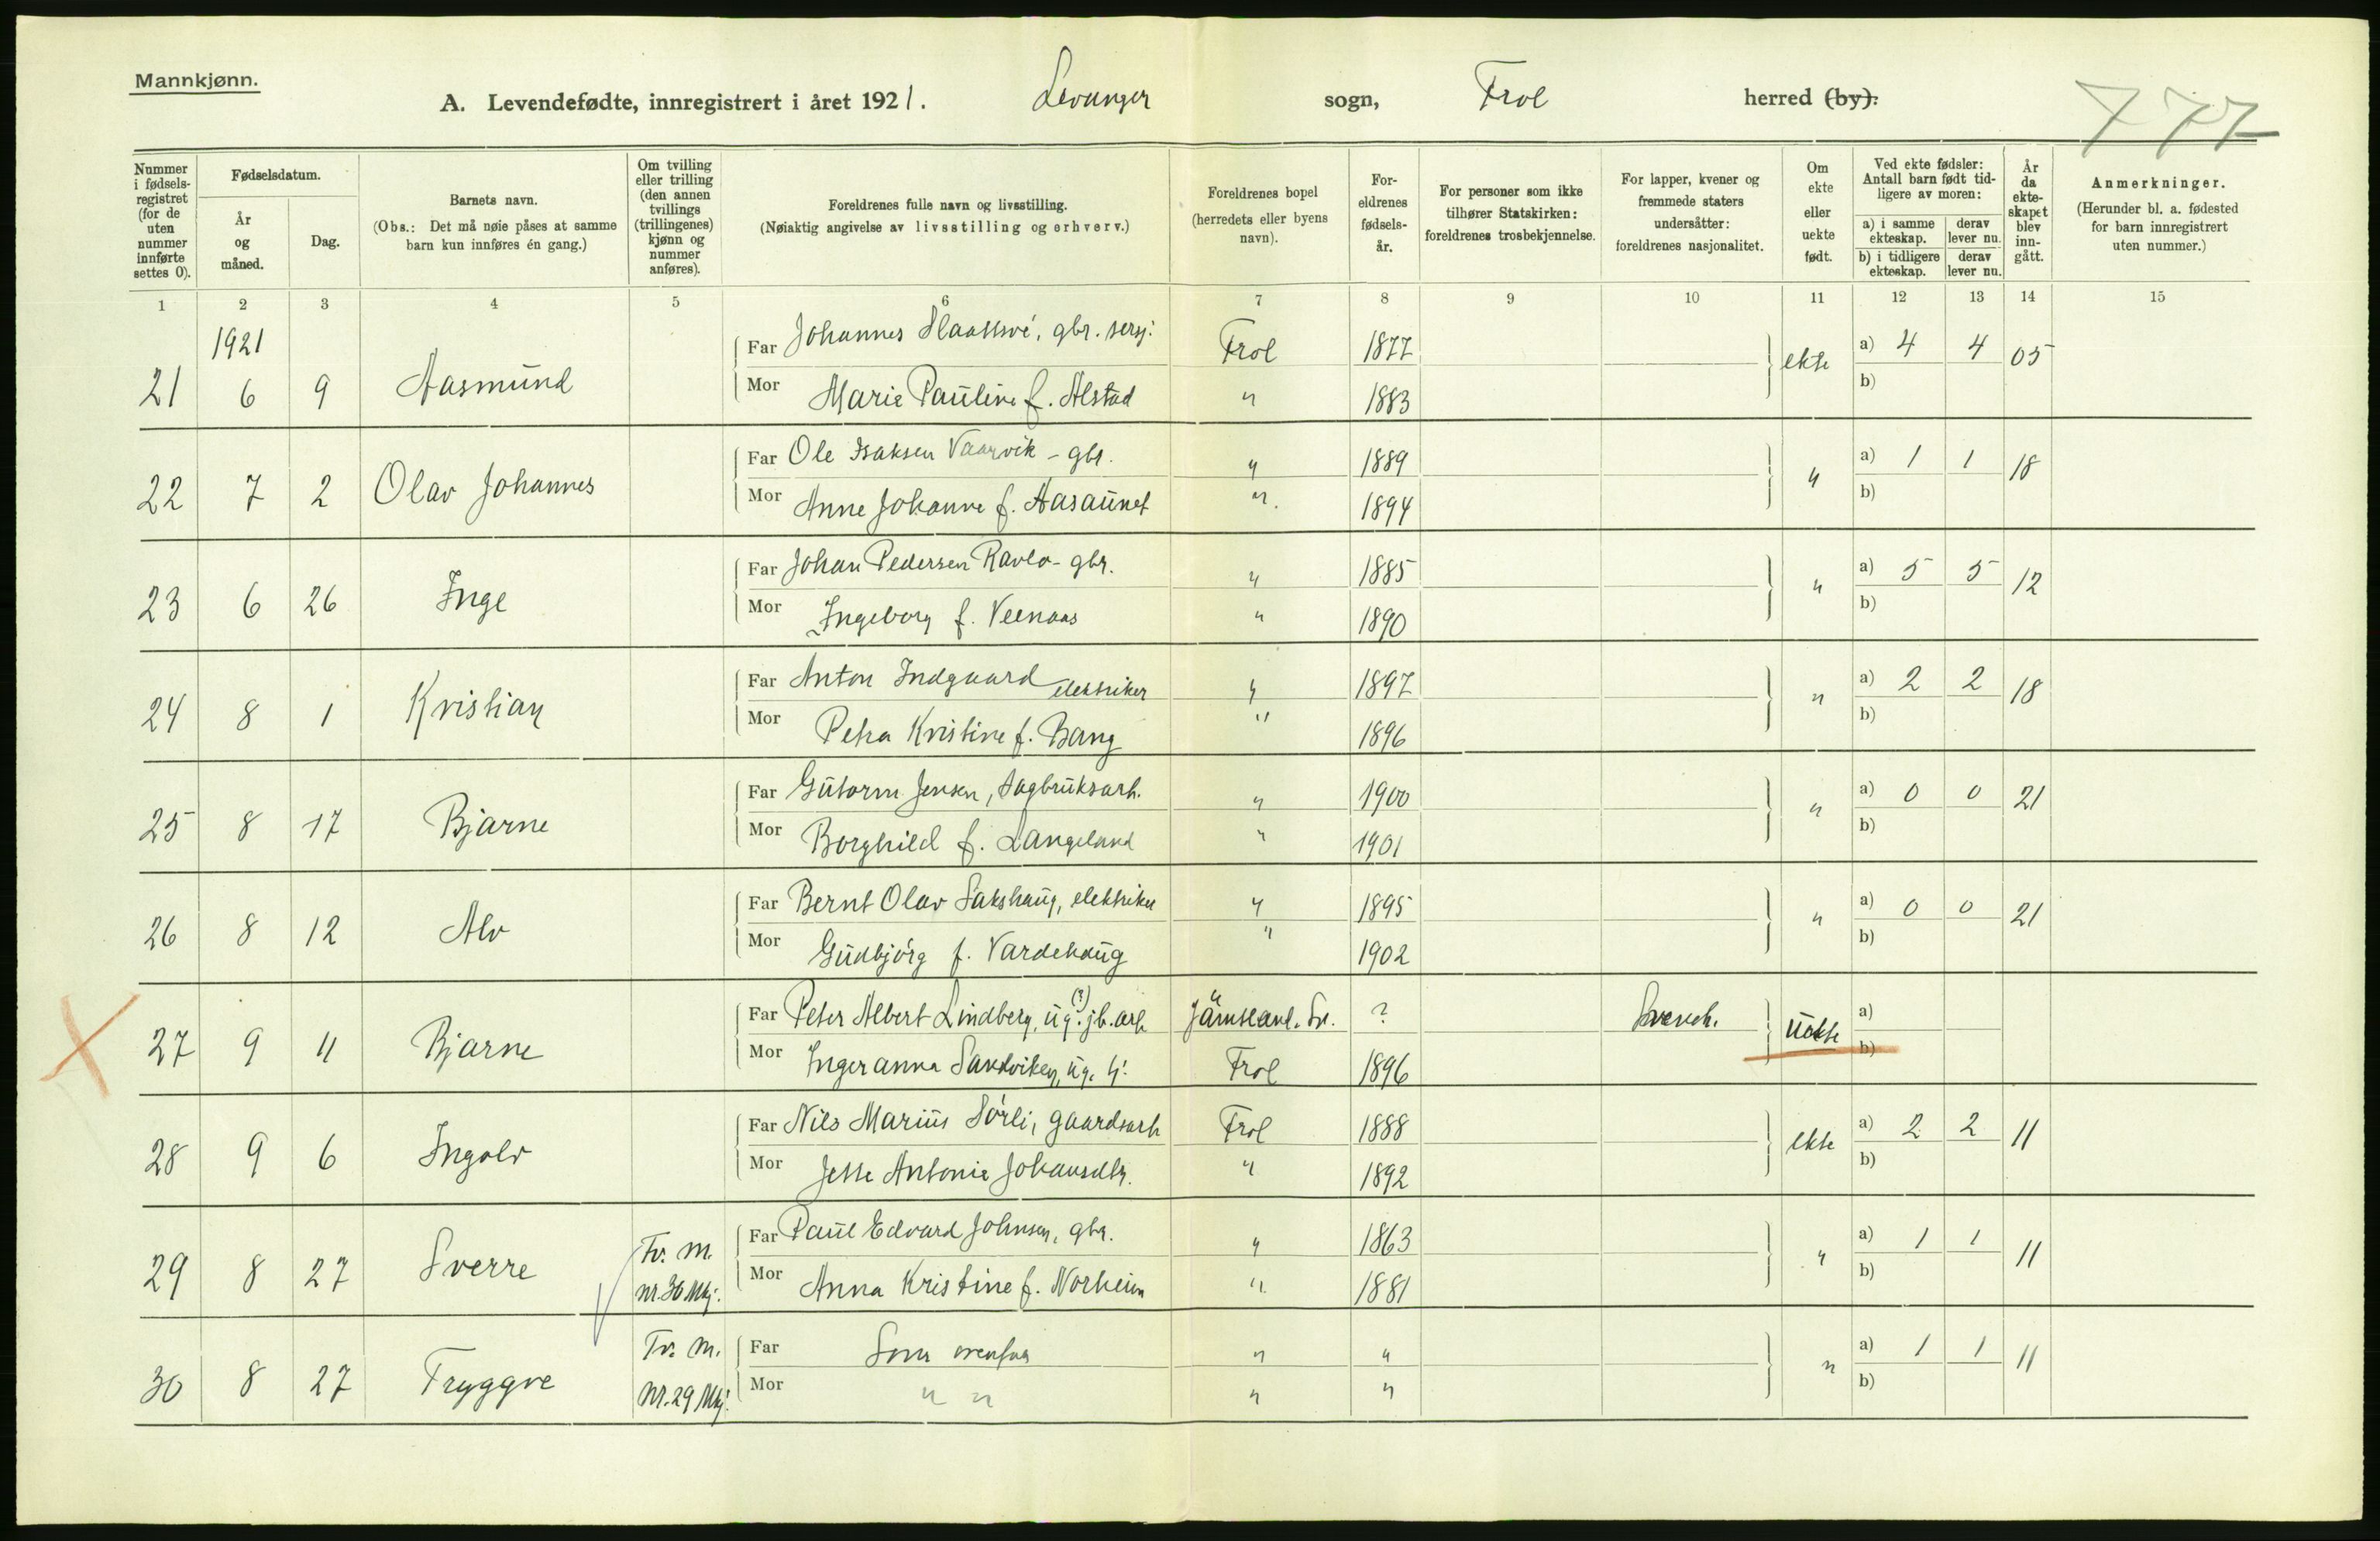 Mannkjønn.
A. Levendefødte, innregistrert i året 1921. Levanger sogn, Frol herred (by).
777
Nummer i fødsels-registret (for de uten nummer innførte settes 0).
Fødselsdatum.
År og måned.
Dag.
Barnets navn.
(Obs.: Det må nøie påses at samme barn kun innføres én gang.)
Om tvilling eller trilling (den annen tvillings (trillingenes) kjønn og nummer anføres).
Foreldrenes fulle navn og livsstilling.
(Nøiaktig angivelse av livsstilling og erhverv.)
Foreldrenes bopel (herredets eller byens navn).
For-eldrenes fødsels-år.
For personer som ikke tilhører Statskirken: foreldrenes trosbekjennelse.
For lapper, kvener og fremmede staters undersåtter: foreldrenes nasjonalitet.
Om ekte eller uekte født.
Ved ekte fødsler: Antall barn født tid-ligere av moren:
a) i samme ekteskap. derav lever nu.
b) i tidligere ekteskap. derav lever nu.
År da ekte-skapet blev inn-gått.
Anmerkninger.
(Herunder bl. a. fødested for barn innregistrert uten nummer.)
1 2 3 4 5 6 7 8 9 10 11 12 13 14 15
1921
Far Johannes gbr. Frol 1877 ekte a) 4 4 05
21 6 9 Aasmund Mor Marie Pauline f. Alstad " 1883 b)
Far Ole Isaksen Vaarvik - gbr. " 1889 " a) 1 1 18
22 7 2 Olav Johannes Mor Anne Johanne f. Aasaunet " 1894 b)
Far Johan Pedersen Ravlo - gbr. " 1885 " a) 5 5 12
23 6 26 Inge Mor Ingeborg f. Veenaas " 1890 b)
Far Anton Indgaard elektriker " 1897 " a) 2 2 18
24 8 1 Kristian Mor Petra Kristine f. Bang " 1896 b)
Far Gutorm Jensen, sagbruksarb. " 1900 " a) 0 0 21
25 8 17 Bjarne Mor Borghild f. Langeland " 1901 b)
Far Bernt Olav Sakshaug, elektriker " 1895 " a) 0 0 21
26 8 12 Alv Mor Gudbjörg f. Vardehaug " 1902 b)
Far Peter Albert Lindberg, ug. (?) jb. arb. Jämtland. Sv. ? Svensk. uekte a)
27 9 11 Bjarne Mor Ingeranna Sandviken, ug. Frol 1896 b)
Far Nils Marius Sörli, gaardsarb Frol 1888 ekte a) 2 2 11
28 9 6 Ingolv Mor Jette Antonie Johansdtr. " 1892 b)
Tv. M. Far Paul Edvard Johnsen, gbr. " 1863 " a) 1 1 11
29 8 27 Sverre nr. 30 Mkj. Mor Anna Kristine f. Norheim " 1881 b)
Tv. M. Far Som ovenfor " " " a) 1 1 11
30 8 27 Tryggve Nr. 29 Mkj. Mor " " " " b)